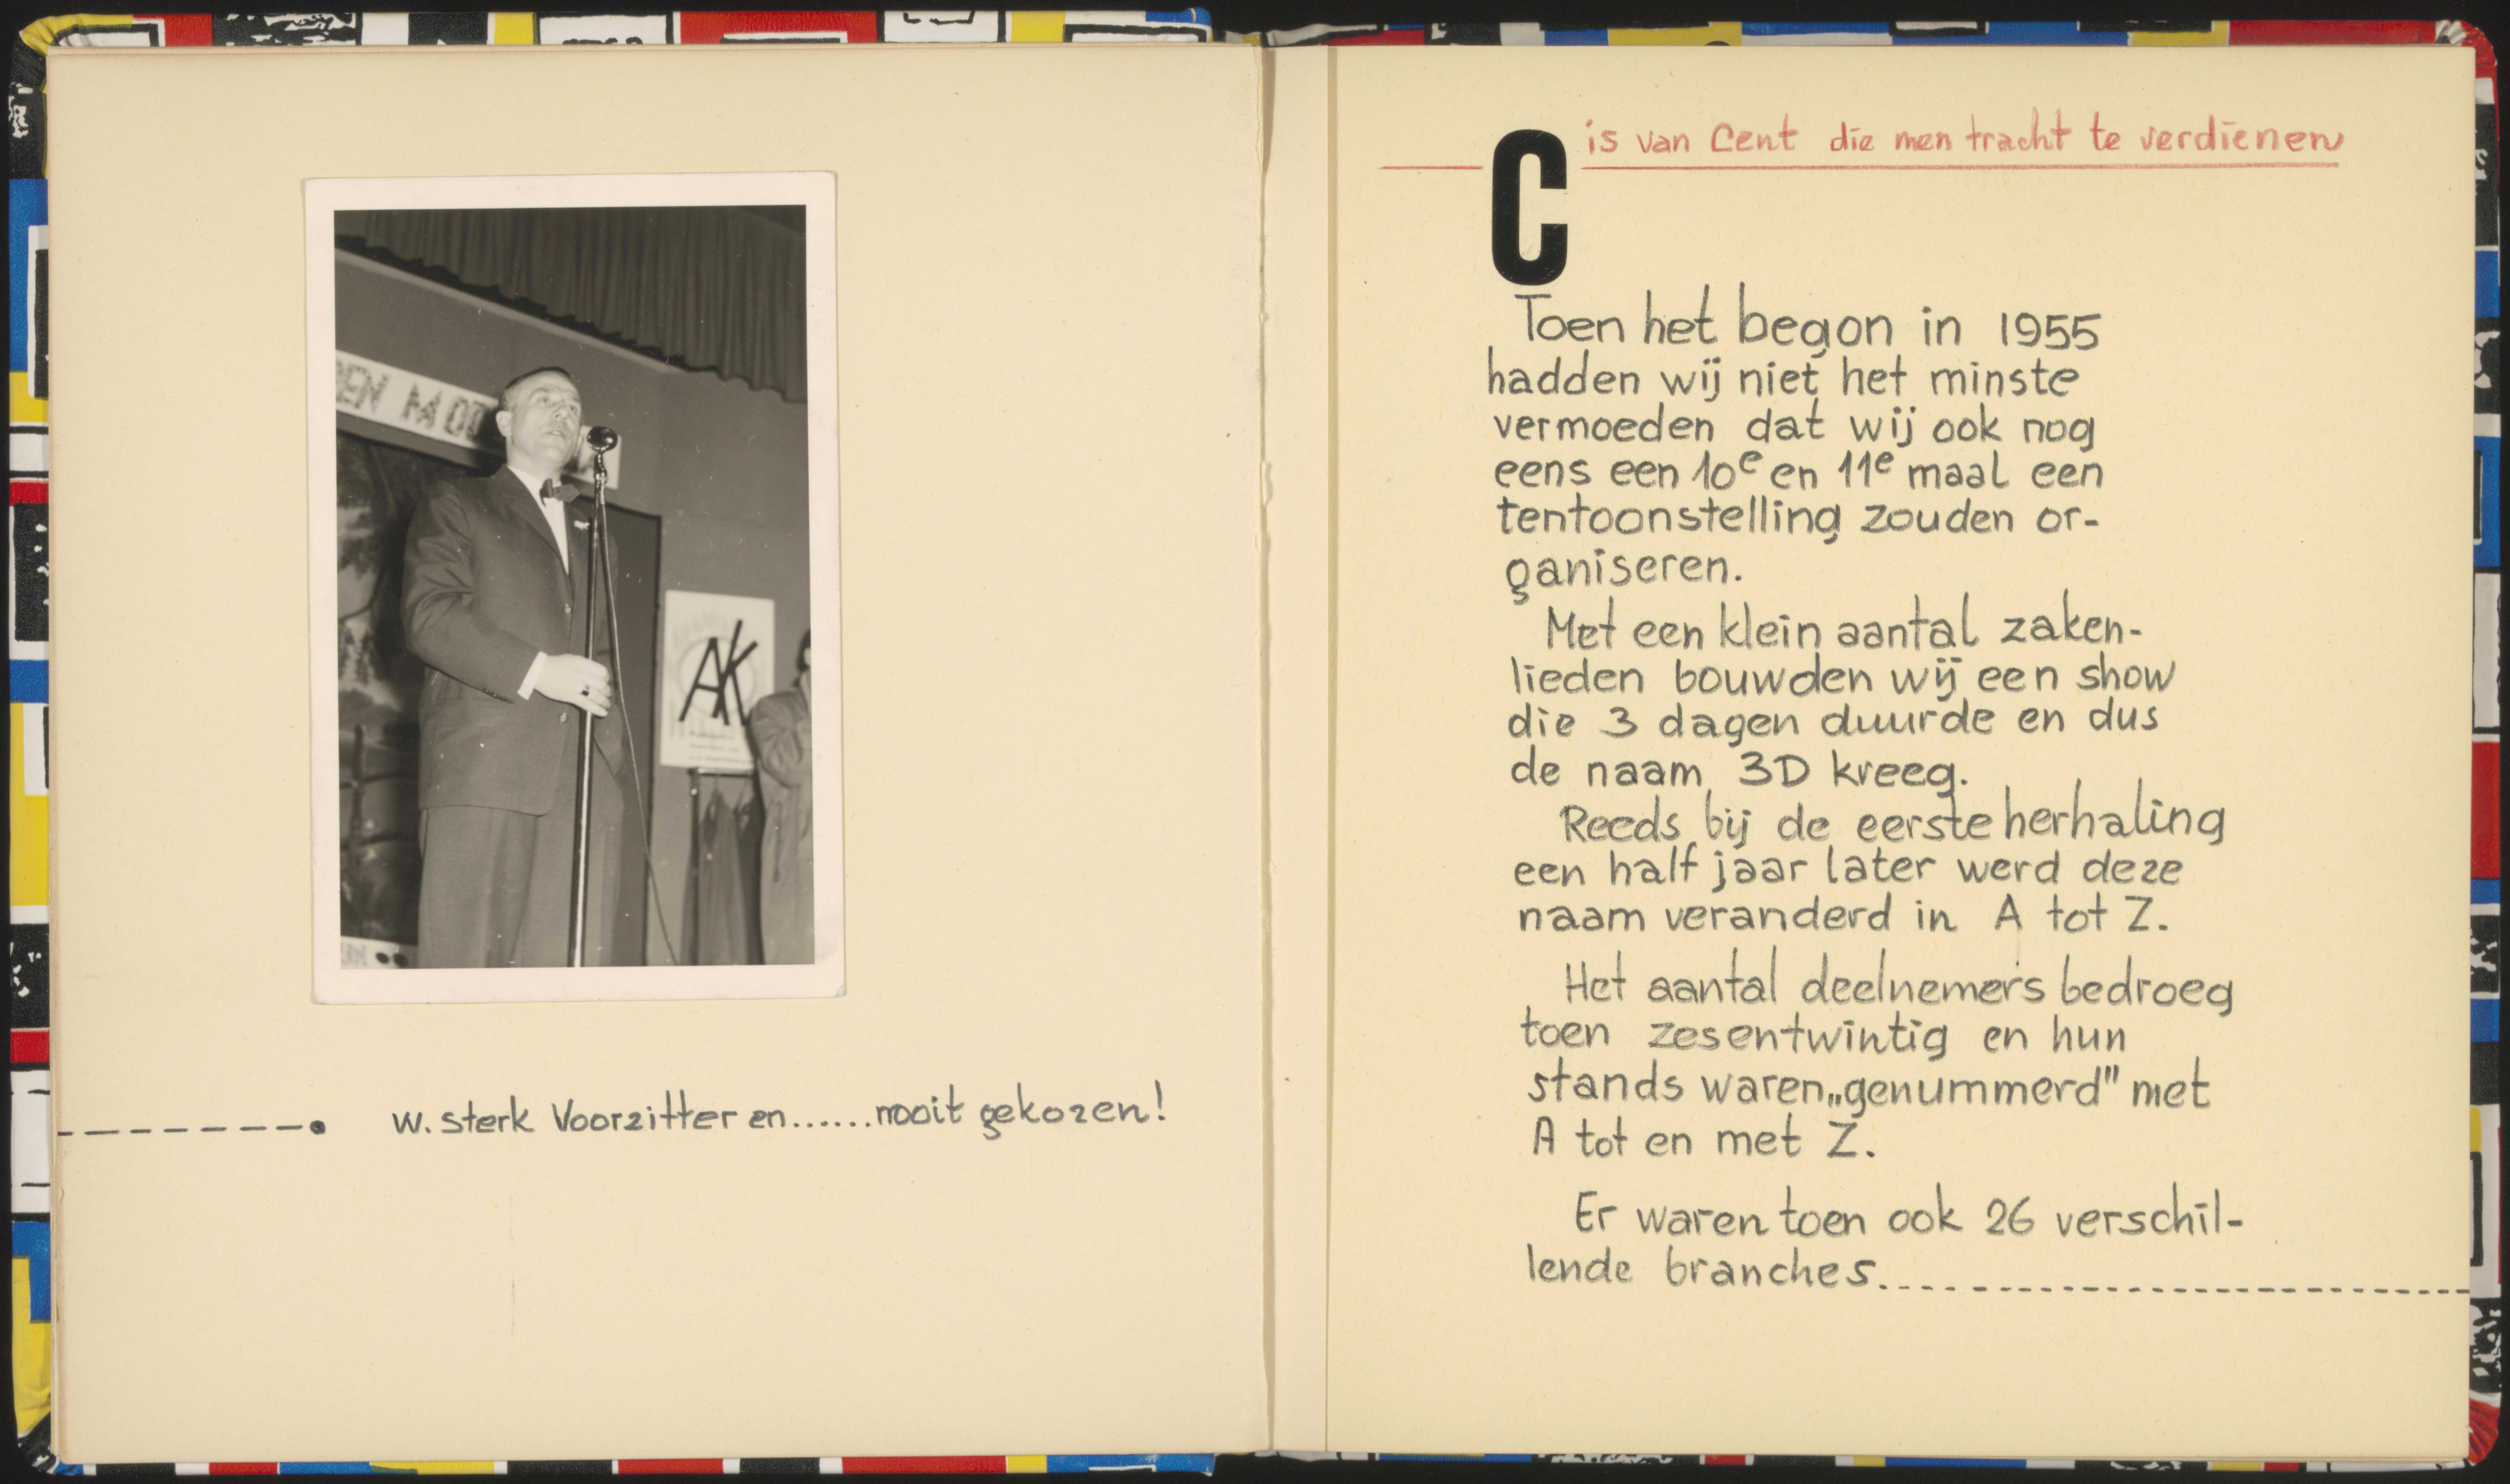 EN MO
AK
w. sterk Voorzitter en......nooit gekozen!
C is van Cent die men tracht te verdienen
Toen het begon in 1955
hadden wij niet het minste
vermoeden dat wij ook nog
eens een 10e en 11e maal een
tentoonstelling zouden or-
ganiseren.
Met een klein aantal zaken-
lieden bouwden wij een show
die 3 dagen duurde en dus
de naam 3D kreeg.
Reeds bij de eerste herhaling
een half jaar later werd deze
naam veranderd in A tot Z.
Het aantal deelnemers bedroeg
toen zesentwintig en hun
stands waren „genummerd" met
A tot en met Z.
Er waren toen ook 26 verschil-
lende branches.